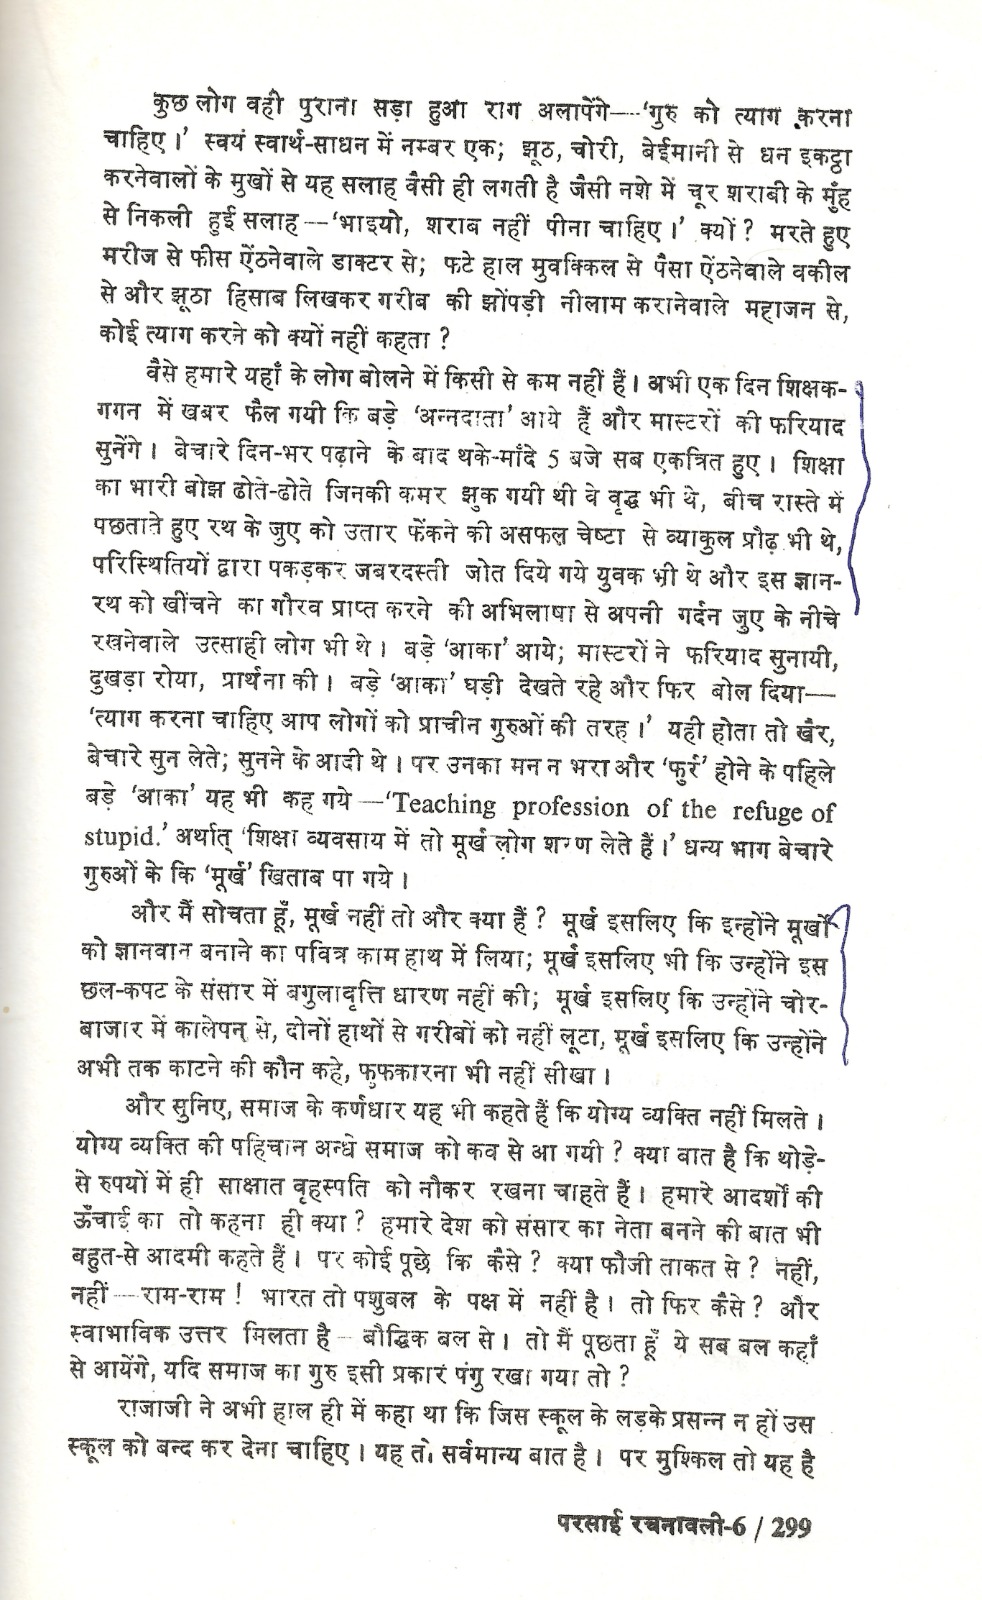 कुछ लोग वही पुराना सड़ा हुआ राग अलापेंगे—'गुरु को त्याग करना
चाहिए।' स्वयं स्वार्थ-साधन में नम्बर एक; झूठ, चोरी, बेईमानी से धन इकट्ठा
करनेवालों के मुखों से यह सलाह वैसी ही लगती है जैसी नशे में चूर शराबी के मुँह
से निकली हुई सलाह—'भाइयो, शराब नहीं पीना चाहिए।' क्यों? मरते हुए
मरीज से फीस ऐंठनेवाले डाक्टर से; फटे हाल मुवक्किल से पैसा ऐंठनेवाले वकील
से और झूठा हिसाब लिखकर गरीब की झोंपड़ी नीलाम करानेवाले महाजन से,
कोई त्याग करने को क्यों नहीं कहता?
वैसे हमारे यहाँ के लोग बोलने में किसी से कम नहीं हैं। अभी एक दिन शिक्षक-
गगन में खबर फैल गयी कि बड़े 'अन्नदाता' आये हैं और मास्टरों की फरियाद
सुनेंगे। बेचारे दिन-भर पढ़ाने के बाद थके-माँदे 5 बजे सब एकत्रित हुए। शिक्षा
का भारी बोझ ढोते-ढोते जिनकी कमर झुक गयी थी वे वृद्ध भी थे, बीच रास्ते में
पछताते हुए रथ के जुए को उतार फेंकने की असफल चेष्टा से व्याकुल प्रौढ़ भी थे,
परिस्थितियों द्वारा पकड़कर जबरदस्ती जोत दिये गये युवक भी थे और इस ज्ञान-
रथ को खींचने का गौरव प्राप्त करने की अभिलाषा से अपनी गर्दन जुए के नीचे
रखनेवाले उत्साही लोग भी थे। बड़े 'आका' आये; मास्टरों ने फरियाद सुनायी,
दुखड़ा रोया, प्रार्थना की। बड़े 'आका' घड़ी देखते रहे और फिर बोल दिया—
'त्याग करना चाहिए आप लोगों को प्राचीन गुरुओं की तरह।' यही होता तो खैर,
बेचारे सुन लेते; सुनने के आदी थे। पर उनका मन न भरा और 'फुर्र' होने के पहिले
बड़े 'आका' यह भी कह गये—'Teaching profession of the refuge of
stupid.' अर्थात् 'शिक्षा व्यवसाय में तो मूर्ख लोग शरण लेते हैं।' धन्य भाग बेचारे
गुरुओं के कि 'मूर्ख' खिताब पा गये।
और मैं सोचता हूँ, मूर्ख नहीं तो और क्या हैं? मूर्ख इसलिए कि इन्होंने मूर्खों
को ज्ञानवान बनाने का पवित्र काम हाथ में लिया; मूर्ख इसलिए भी कि उन्होंने इस
छल-कपट के संसार में बगुलावृत्ति धारण नहीं की; मूर्ख इसलिए कि उन्होंने चोर-
बाजार में कालेपन से, दोनों हाथों से गरीबों को नहीं लूटा, मूर्ख इसलिए कि उन्होंने
अभी तक काटने की कौन कहे, फुफकारना भी नहीं सीखा।
और सुनिए, समाज के कर्णधार यह भी कहते हैं कि योग्य व्यक्ति नहीं मिलते।
योग्य व्यक्ति की पहिचान अन्धे समाज को कब से आ गयी? क्या बात है कि थोड़े-
से रुपयों में ही साक्षात वृहस्पति को नौकर रखना चाहते हैं। हमारे आदर्शों की
ऊँचाई का तो कहना ही क्या? हमारे देश को संसार का नेता बनने की बात भी
बहुत-से आदमी कहते हैं। पर कोई पूछे कि कैसे? क्या फौजी ताकत से? नहीं,
नहीं—राम-राम! भारत तो पशुबल के पक्ष में नहीं है। तो फिर कैसे? और
स्वाभाविक उत्तर मिलता है—बौद्धिक बल से। तो मैं पूछता हूँ ये सब बल कहाँ
से आयेंगे, यदि समाज का गुरु इसी प्रकार पंगु रखा गया तो?
राजाजी ने अभी हाल ही में कहा था कि जिस स्कूल के लड़के प्रसन्न न हों उस
स्कूल को बन्द कर देना चाहिए। यह तो सर्वमान्य बात है। पर मुश्किल तो यह है
परसाई रचनावली-6 / 299